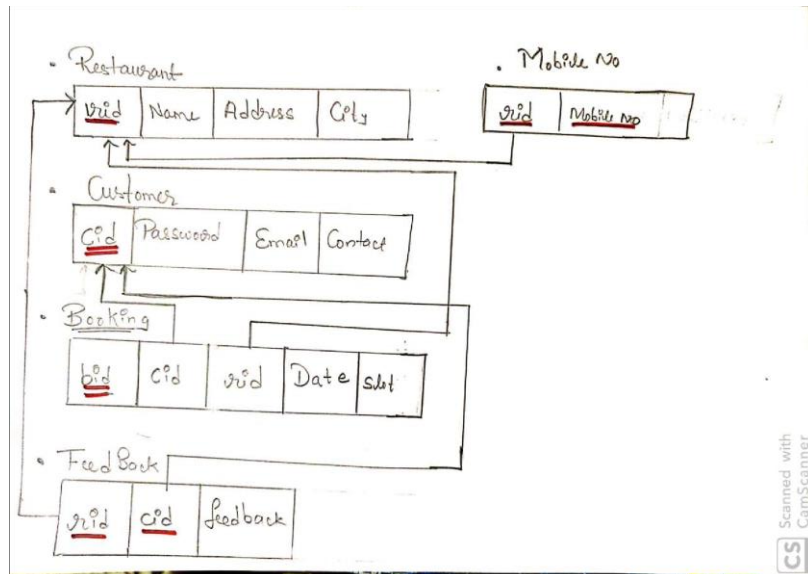 Restaurant
rid Name Address City
Mobile No
rid Mobile No
Customer
Cid Password Email Contact
Booking
bid cid rid Date Slot
FeedBack
rid cid feedback
CS Scanned with CamScanner